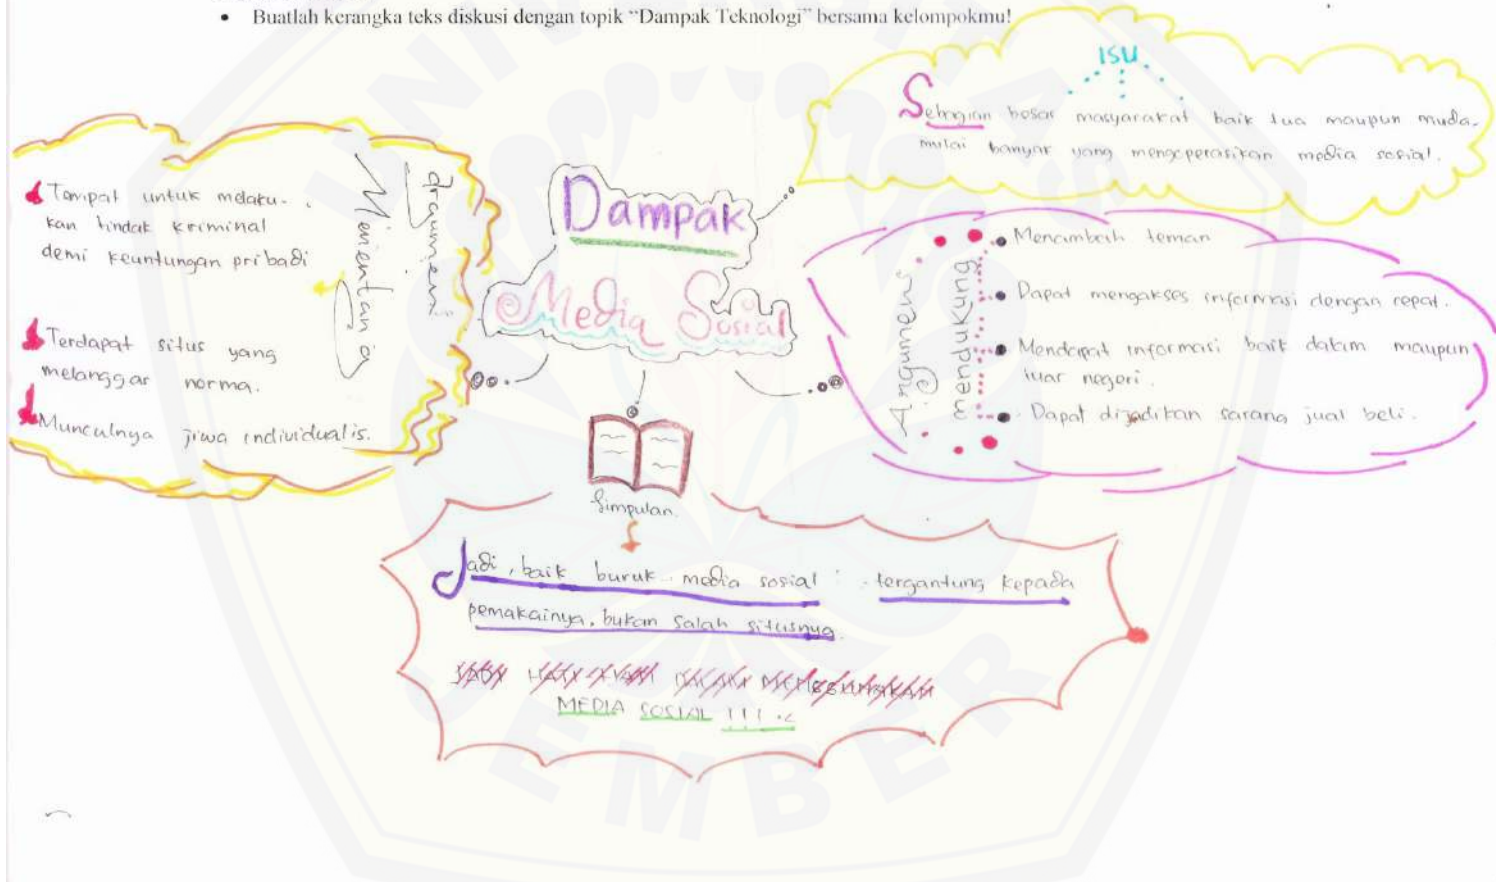 • Buatlah kerangka teks diskusi dengan topik “Dampak Teknologi” bersama kelompokmu!
ISU
Sebagian besar masyarakat baik tua maupun muda.
mulai banyak yang mengoperasikan media sosial.
Dampak
Media Sosial
Argumen
Menentang
Tempat untuk melaku-
kan tindak kriminal
demi keuntungan pribadi
Terdapat situs yang
melanggar norma.
Munculnya jiwa individualis.
Argumen
mendukung
Menambah teman
Dapat mengakses informasi dengan cepat.
Mendapat informasi baik dalam maupun
luar negeri.
Dapat dijadikan sarana jual beli.
Simpulan
Jadi, baik buruk media sosial tergantung kepada
pemakainya, bukan salah situsnya.
MEDIA SOSIAL !!!
JEMBER